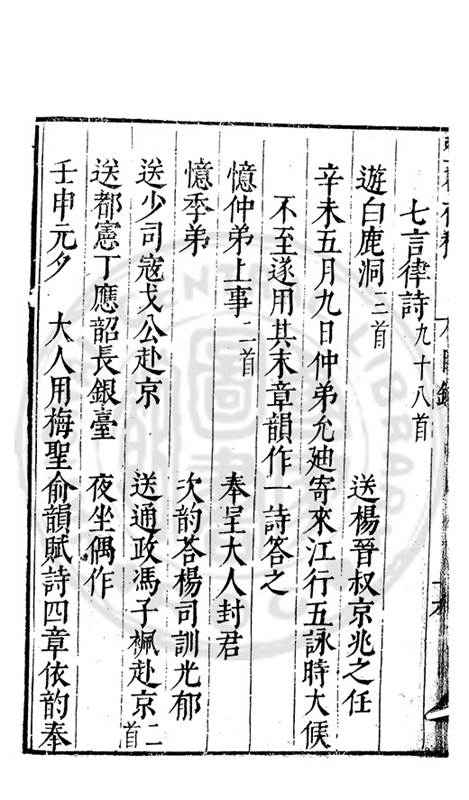 七言律詩九十八首
遊白鹿洞三首 送楊晉叔京兆之任
辛未五月九日仲弟允廸寄來江行五詠時大候
不至遂用其末章韻作一詩答之
憶仲弟上事二首 奉呈大人封君
憶季弟 次韵荅楊司訓光郁
送少司寇戈公赴京 送通政馮子楓赴京二首
送都憲丁應韶長銀臺 夜坐偶作
壬申元夕 大人用梅聖俞韻賦詩四章依韵奉